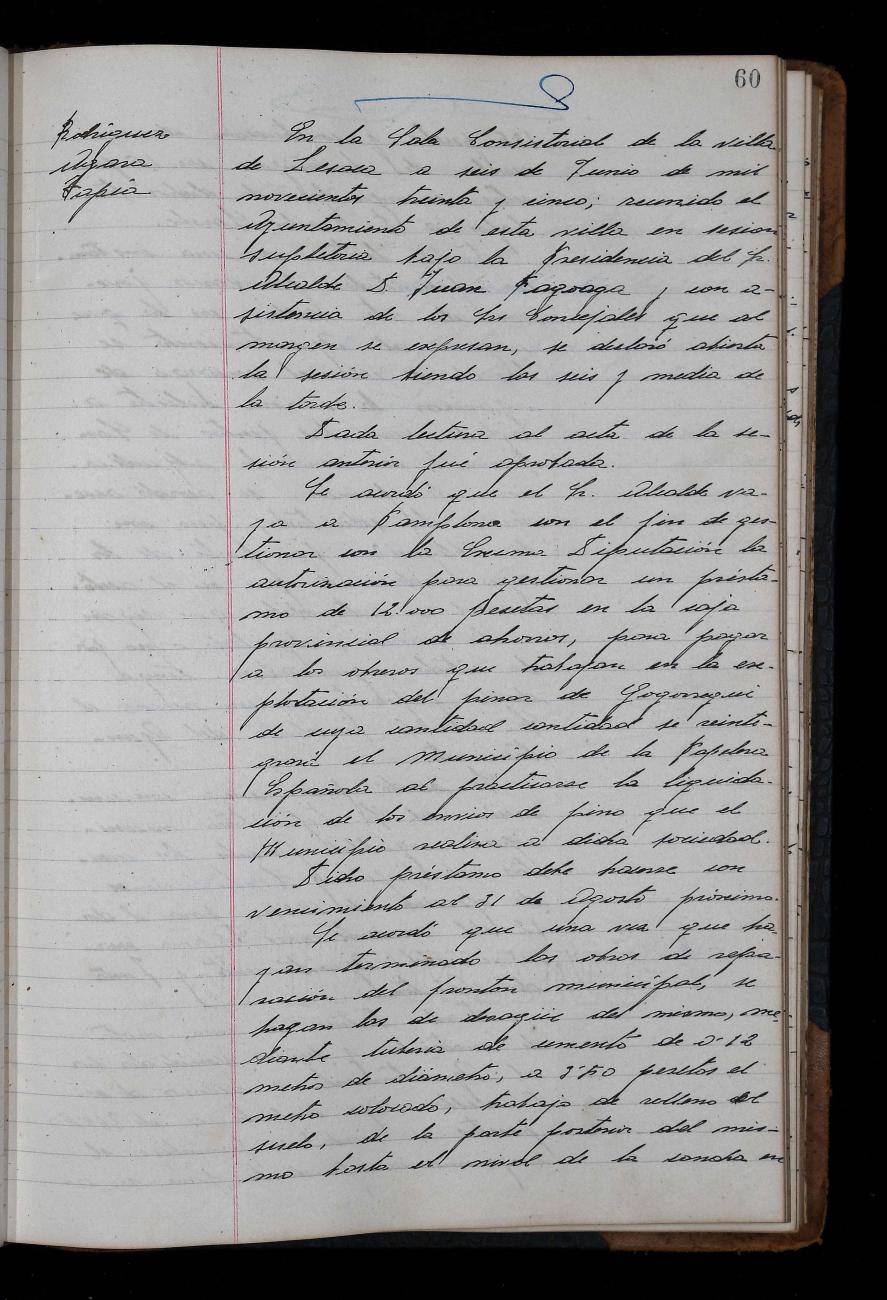 60
Rodriguez
Agara
Tapia
En la Sala Consistorial de la villa
de Lesaca a seis de Junio de mil
novecientos treinta y cinco; reunido el
Ayuntamiento de esta villa en sesion
supletoria bajo la Presidencia del Sr.
Alcalde D. Juan Fagoaga y con a-
sistencia de los Srs Concejales que al
margen se expresan, se declaró abierta
la sesión siendo las seis y media de
la tarde.
Dada lectura al acta de la se-
sión anterior fué aprobada.
Se acordó que el Sr. Alcalde va-
ya a Pamplona con el fin de ges-
tionar con la Excma Diputación la
autorización para gestionar un présta-
mo de 12.000 pesetas en la caja
provincial de ahorros, para pagar
a los obreros que trabajan en la ex-
plotación del pinar de Gogorregui
de cuya cantidad cantidad se reinte-
grará el Municipio de la Papelera
Española al practicarse la liquida-
ción de los envios de pino que el
Municipio realiza a dicha sociedad.
Dicho préstamo debe hacerse con
vencimiento al 31 de Agosto próximo.
Se acordó que una vez que ha-
yan terminado las obras de repa-
ración del frontón municipal, se
hagan las de desagüe del mismo, me-
diante tuberia de cemento de 0'12
metros de diámetro, a 3'50 pesetas el
metro colocado, trabajo de relleno del
suelo, de la parte posterior del mis-
mo hasta el nivel de la cancha en